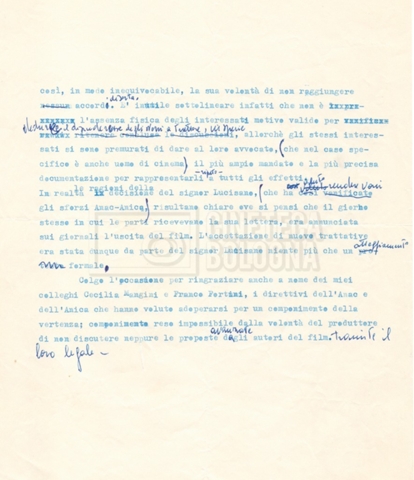 così, in modo inequivocabile, la sua volontà di non raggiungere
nessun accordo. E' inutile sottolineare infatti che non è
l'assenza fisica degli interessati motivo valido per
allorchè gli stessi interes-
sati si sono premurati di dare al loro avvocato, (che nel caso spe-
cifico è anche uomo di cinema) il più ampio mandato e la più precisa
documentazione per rappresentarli a tutti gli effetti.
le ragioni della
In realtà la decisione del signor Lucisano, (che ha così vanificato render vani
gli sforzi Anac-Anica) risultano chiare ove si pensi che il giorno
stesso in cui le parti ricevevano la sua lettera, era annunciata
sui giornali l'uscita del film. L'accettazione di nuove trattative
era stata dunque da parte del signor Lucisano niente più che un atteggiamento
formale.
Colgo l'occasione per ringraziare anche a nome dei miei
colleghi Cecilia Mangini e Franco Fortini, i direttivi dell'Anac e
dell'Anica che hanno voluto adoperarsi per un componimento della
vertenza; componimento reso impossibile dalla volontà del produttore
avanzate
di non discutere neppure le proposte degli autori del film. tramite il
loro legale –
CINETECA
BOLOGNA